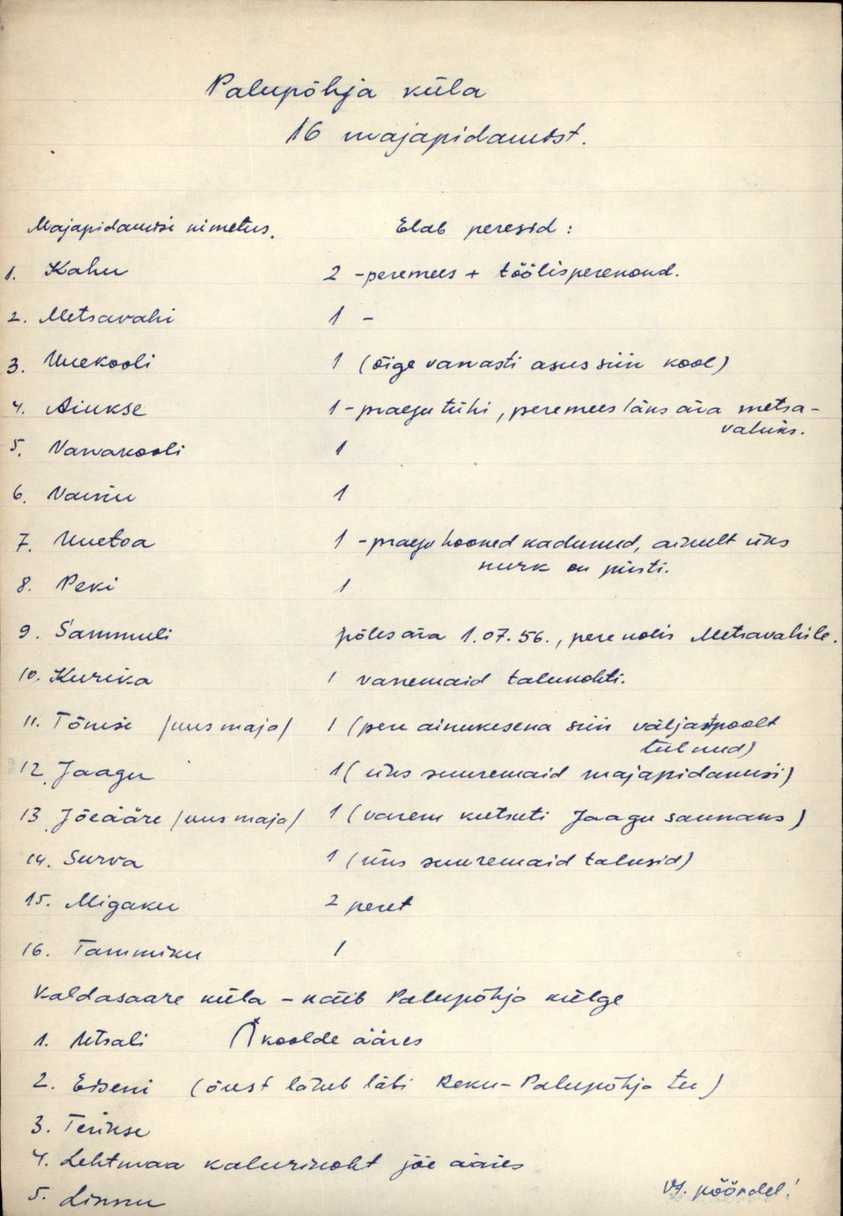 Palupõhja küla
16 majapidamist.
Majapidamise nimetus. Elab peresid:
1. Kahu 2 - peremees + töölisperekond.
2. Metsavahi 1 -
3. Uuekooli 1 (õige vanasti asus siin kool)
4. Aiukse 1 - praegu tühi, peremees läks ära metsa-
vahiks.
5. Vanakooli 1
6. Vainu 1
7. Uuetoa 1 - praegu hooned kadunud, ainult üks
nurk on püsti.
8. Peki 1
9. Sammuli põles ära 1.07.56., pere kolis Metsavahile.
10. Kurika 1 vanemaid talukohti.
11. Tõnise /uus maja/ 1 (pere ainukesena siin väljastpoolt
tulnud)
12. Jaagu 1 (üks suuremaid majapidamisi)
13. Jõeääre /uus maja/ 1 (vanem kutsuti Jaagu saunaks)
14. Surva 1 (üks suuremaid talusid)
15. Migaku 2 peret
16. Tammiku 1
Kaldasaare küla - käib Palupõhja külge
1. Utsali koolde ääres
2. Eiseni (õuest läheb läbi Reku-Palupõhja tee)
3. Terikse
4. Lehtmaa kalurikoht jõe ääres
5. Linnu
vt. pöördel!